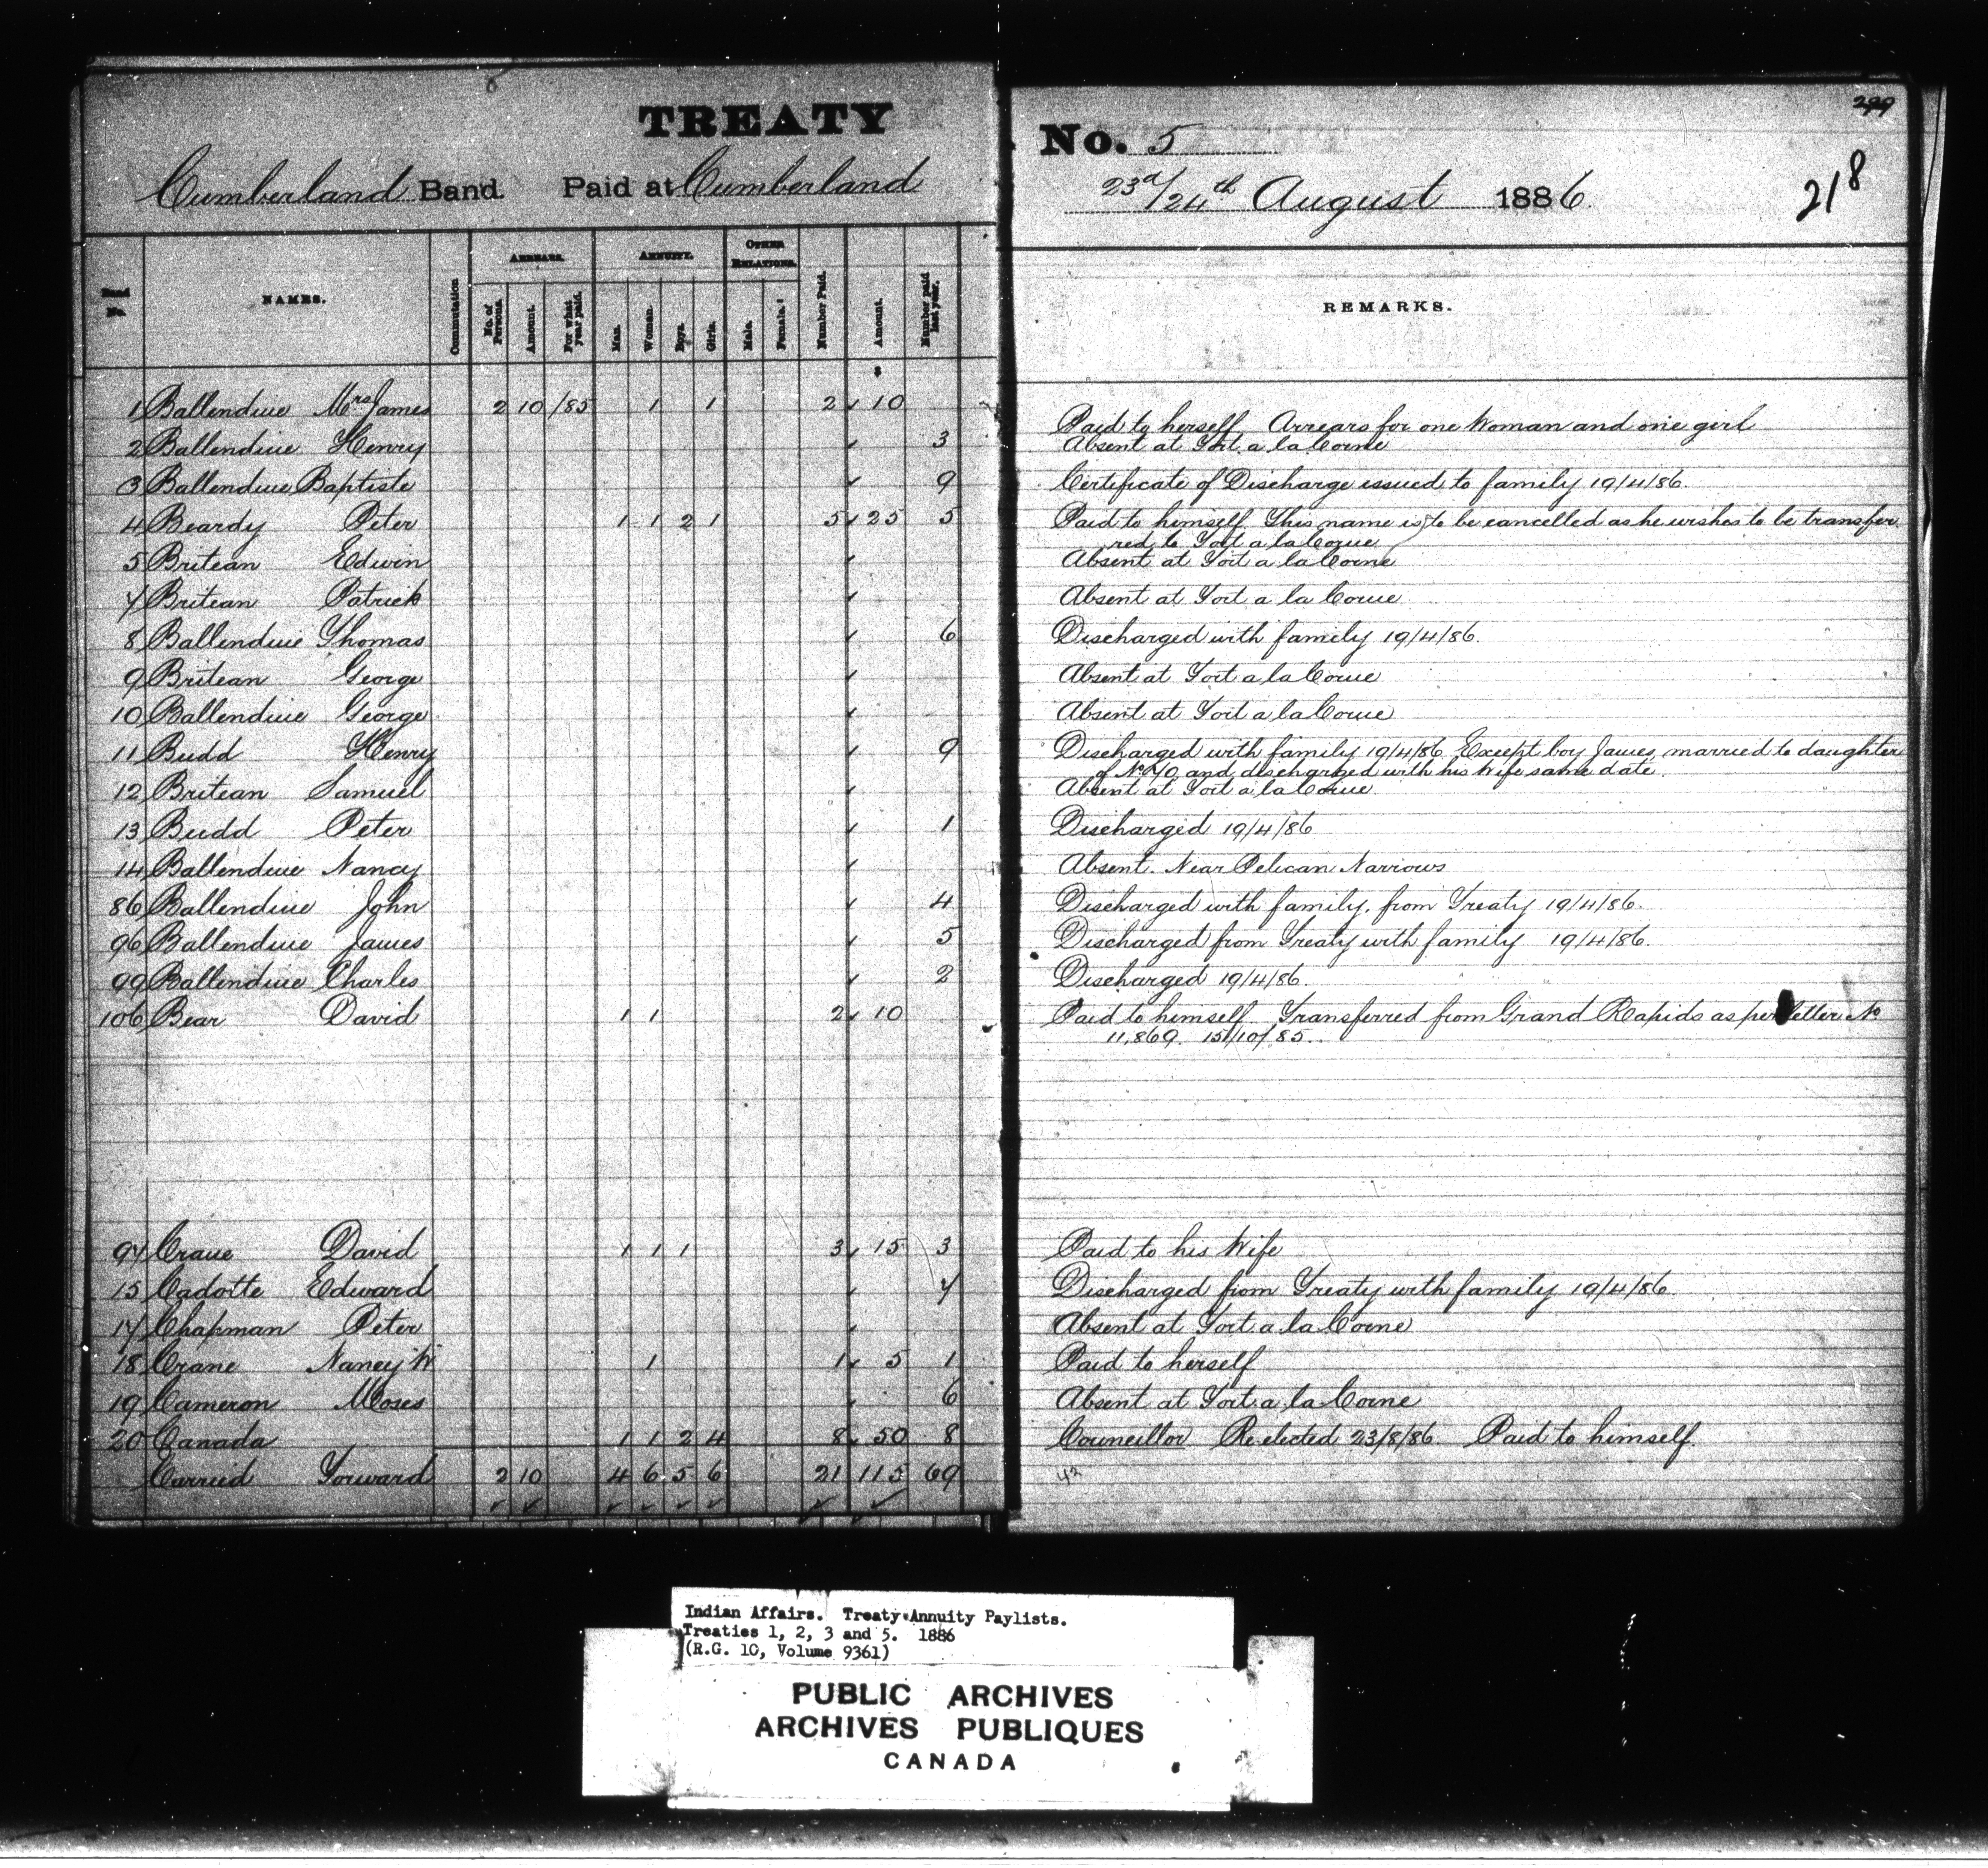 TREATY No. 5
299
Cumberland Band Paid at Cumberland 23d/24th August 1886.
218
Band No.
NAMES.
Commutation
ARREARS.
No. of Persons.
Amount.
For what year paid.
ANNUITY.
Men.
Women.
Boys.
Girls.
OTHER RELATIONS.
Male.
Female.
Number Paid.
Amount.
Number paid last year.
REMARKS.
$
1 Ballendine Mrs James 2 10 /85 1 1 2 10 Paid to herself. Arrears for one Woman and one girl
2 Ballendine Henry 3 Absent at Fort a la Corne
3 Ballendine Baptiste 9 Certificate of Discharge issued to family 19/4/86.
4 Beardy Peter 1 1 2 1 5 25 5 Paid to himself. This name is to be cancelled as he wishes to be transfer
red to Fort a la Corne
5 Britean Edwin Absent at Fort a la Corne
7 Britean Patrick Absent at Fort a la Corne
8 Ballendine Thomas 6 Discharged with family 19/4/86.
9 Britean George Absent at Fort a la Corne
10 Ballendine George Absent at Fort a la Corne
11 Budd Henry 9 Discharged with family 19/4/86 Except boy James, married to daughter
of No 70 and discharged with his Wife same date.
12 Britean Samuel Absent at Fort a la Corne
13 Budd Peter 1 Discharged 19/4/86
14 Ballendine Nancy Absent. Near Pelican Narrows
86 Ballendine John 4 Discharged with family, from Treaty 19/4/86.
96 Ballendine James 5 Discharged from Treaty with family 19/4/86.
99 Ballendine Charles 2 Discharged 19/4/86.
106 Bear David 1 1 2 10 Paid to himself. Transferred from Grand Rapids as per letter No
11,869. 15/10/85.
97 Crane David 1 1 1 3 15 3 Paid to his Wife
15 Cadotte Edward 7 Discharged from Treaty with family 19/4/86.
17 Chapman Peter Absent at Fort a la Corne
18 Crane Nancy W 1 1 5 1 Paid to herself
19 Cameron Moses 6 Absent at Fort a la Corne
20 Canada 1 1 2 4 8 50 8 Councillor Re-elected 23/8/86. Paid to himself.
Carried Forward 2 10 4 6 5 6 21 115 69
42
Indian Affairs. Treaty Annuity Paylists.
Treaties 1, 2, 3 and 5. 1886
(R.G. 10, Volume 9361)
PUBLIC ARCHIVES
ARCHIVES PUBLIQUES
CANADA